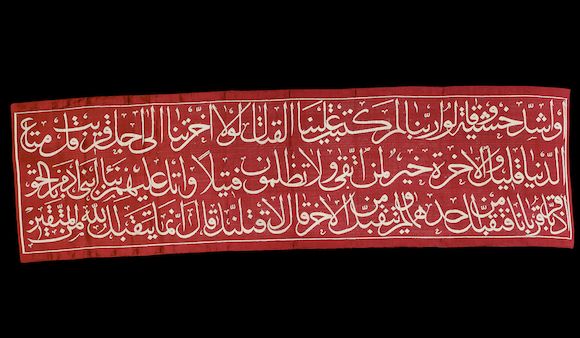 أو أشدّ خشية وقالوا ربنا لم كتبت علينا القتال لولا أخّرتنا إلى أجل قريب قل متاع
الدنيا قليل والآخرة خير لمن اتّقى ولا تظلمون فتيلاً واتل عليهم نبأ ابني آدم بالحق
إذ قربا قربانا فتقبل من أحدهما ولم يتقبل من الآخر قال لأقتلنك قال إنّما يتقبل الله من المتّقين